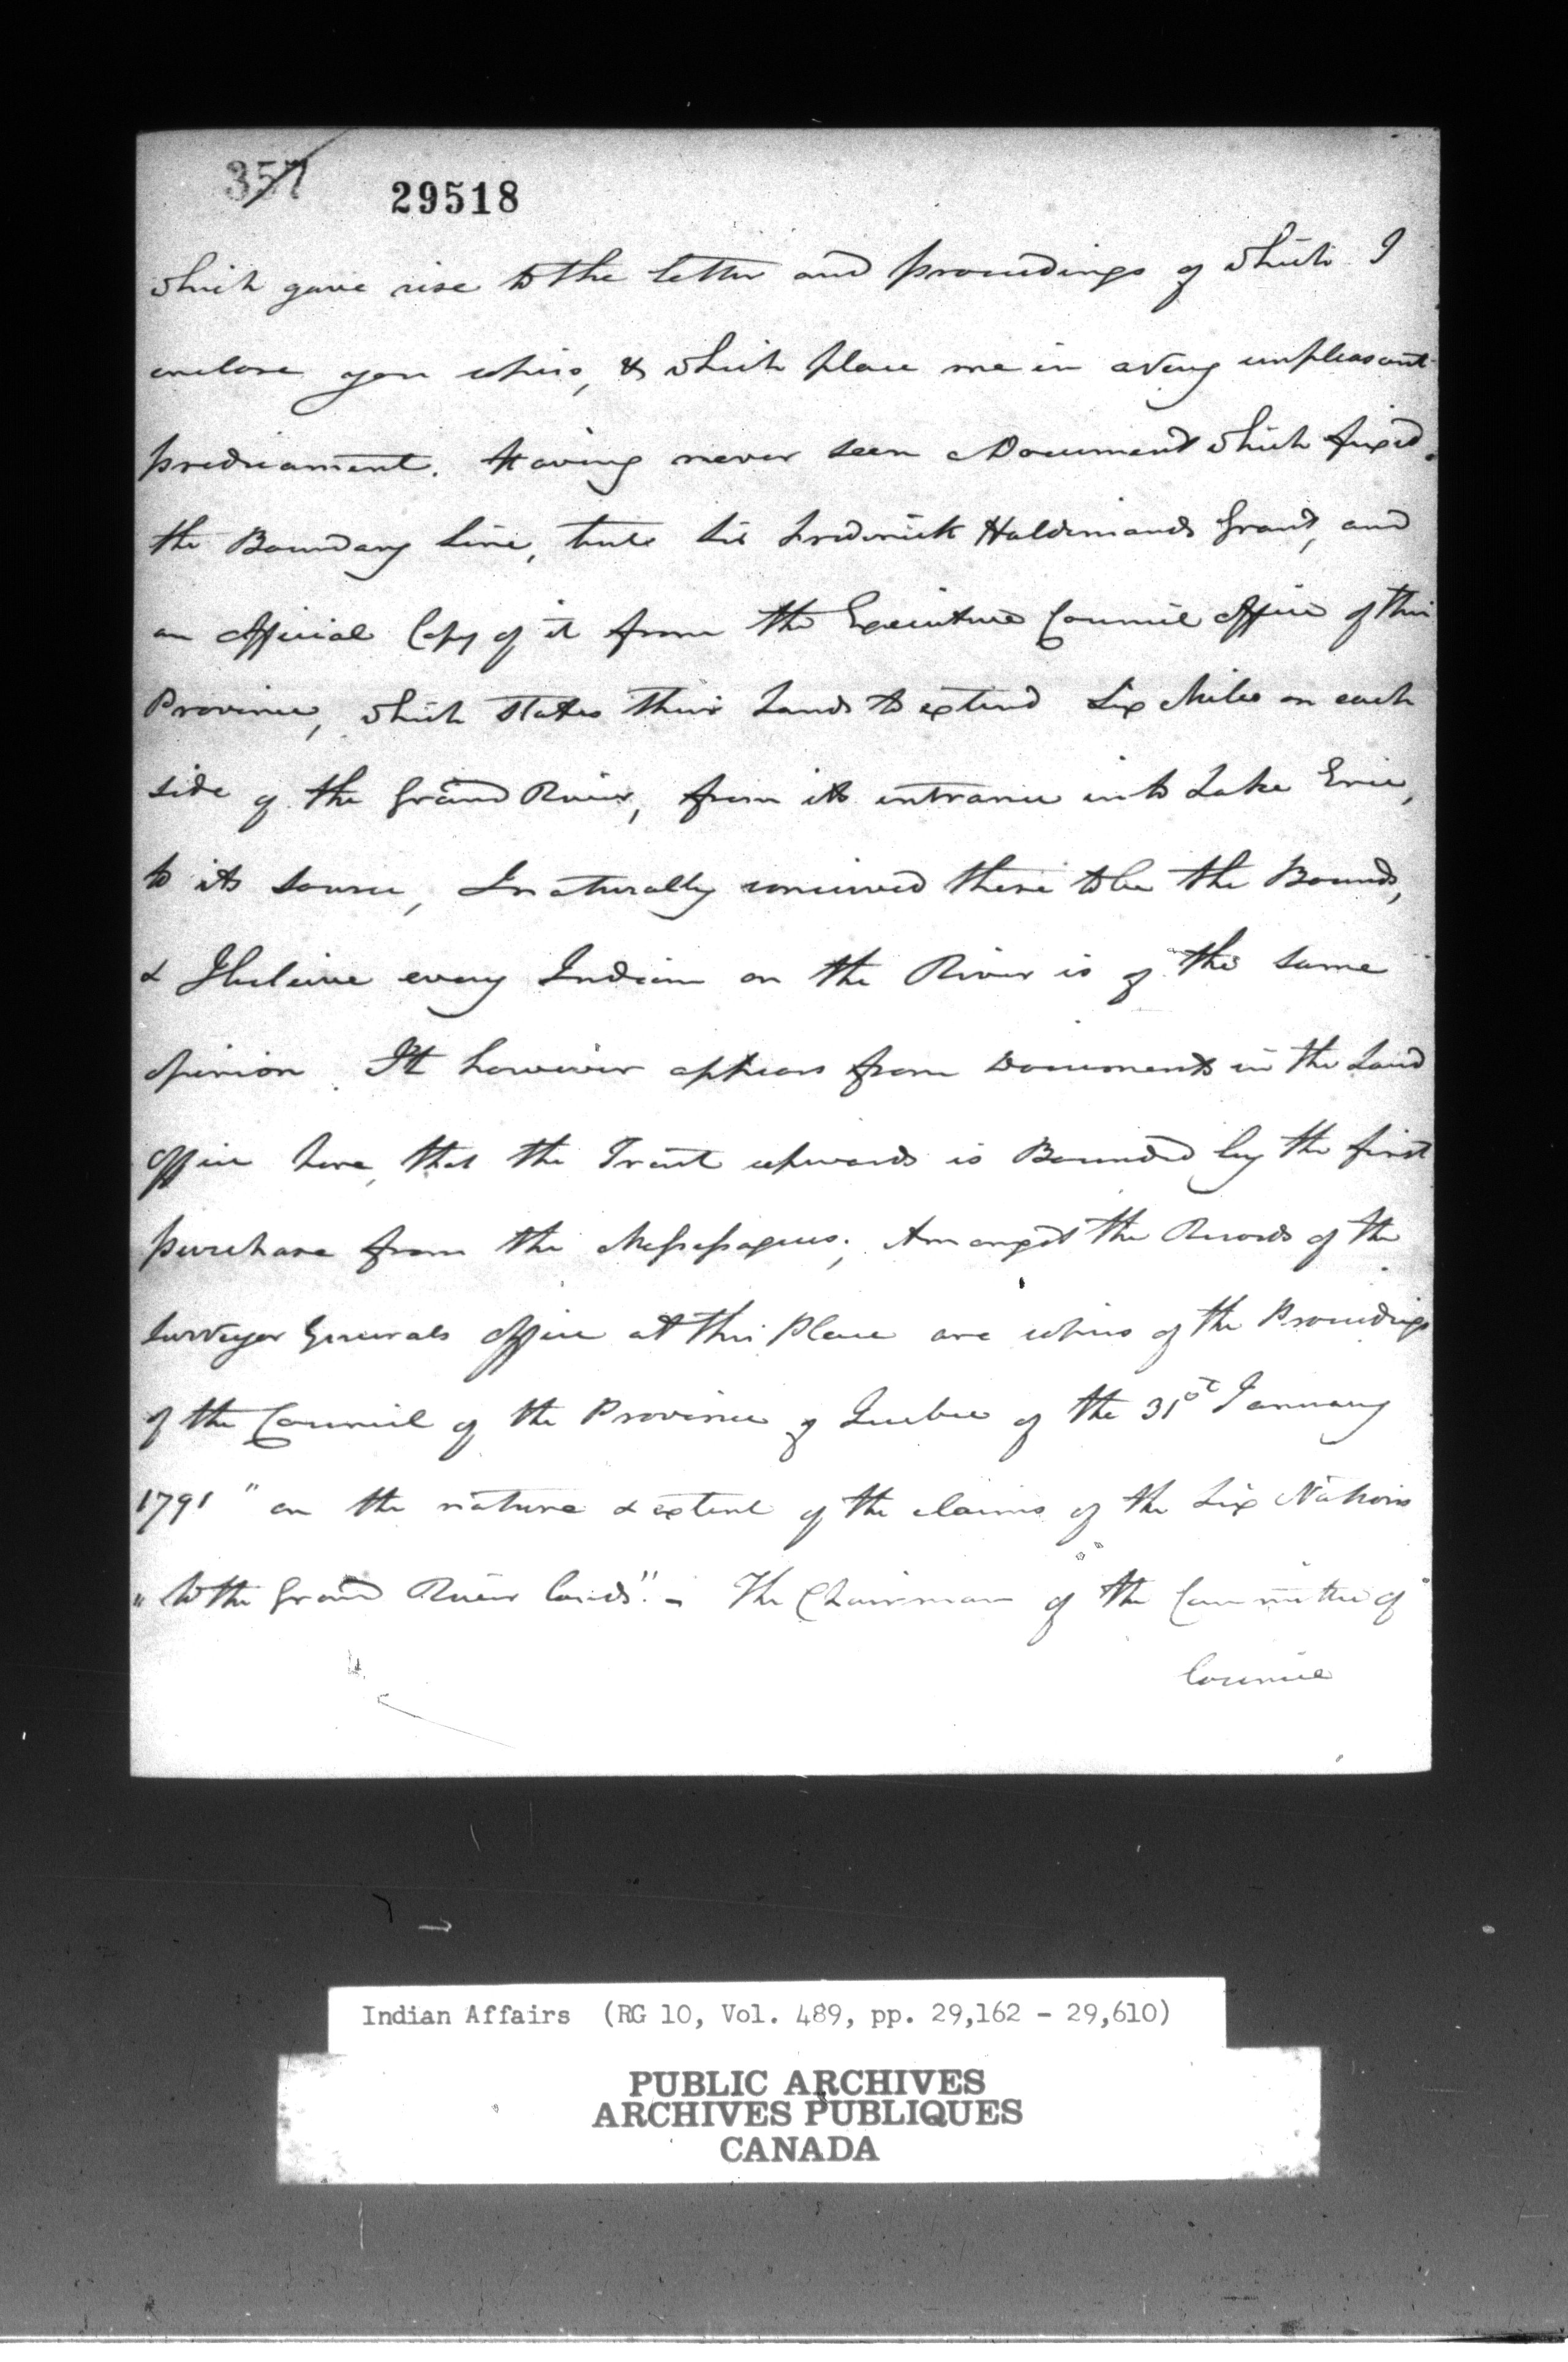 357
29518
which gave rise to the letter and proceedings of which I
enclose you copies, & which place me in a very unpleasant
predicament. Having never seen a Document which fixed
the Boundary line, but Sir Frederick Haldimands Grant, and
an official Copy of it from the Executive Council Office of this
Province, which states their Lands to extend Six Miles on each
side of the Grand River, from its entrance into Lake Erie,
to its source, I naturally conceived these to be the Bounds,
& I believe every Indian on the River is of the same
opinion. It however appears from Documents in the Land
Office here, that the Tract upwards is Bounded by the first
purchase from the Messessagues; Amongst the Records of the
Surveyor Generals Office at this Place are copies of the Proceedings
of the Council of the Province of Quebec of the 31st January
1791 "on the nature & extent of the claims of the Six Nations
"to the Grand River lands". - The Chairman of the Committee of
Council
Indian Affairs (RG 10, Vol. 489, pp. 29,162 - 29,610)
PUBLIC ARCHIVES
ARCHIVES PUBLIQUES
CANADA